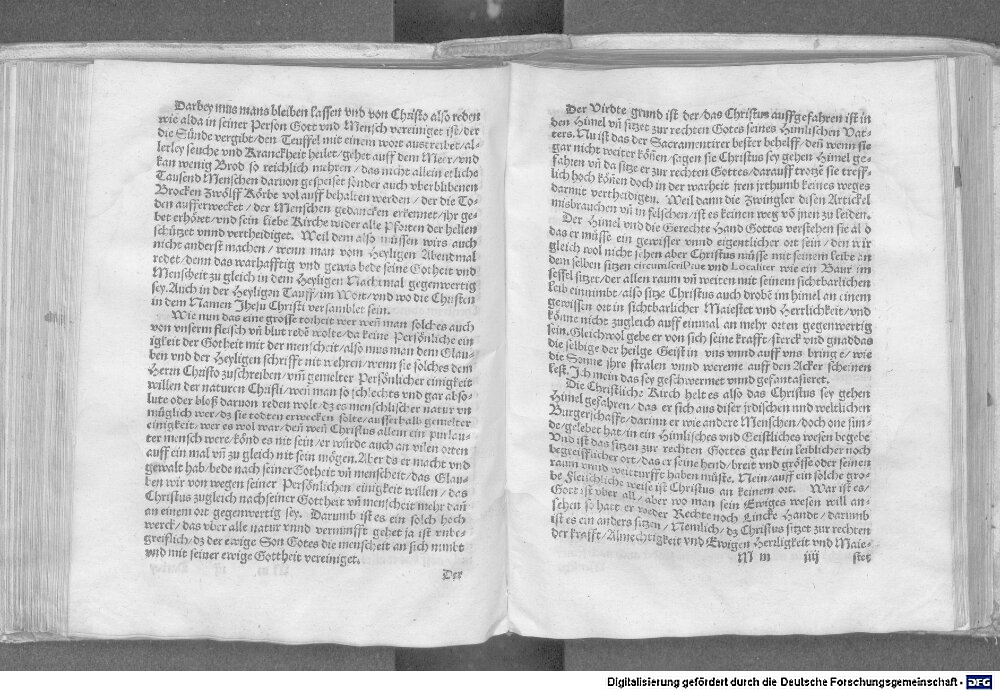 Darbey mus mans bleiben lassen vnd von Christo also reden
wie alda in seiner Person Gott vnd Mensch vereiniget ist/der
die Sünde vergibt/den Teuffel mit einem wort austreibet/al-
lerley seuche vnd Kranckheit heilet/gehet auff dem Meer/vnd
kan wenig Brod so reichlich mehren/das nicht allein etliche
Tausend Menschen daruon gespeiset sonder auch vberblibenen
Brocken zwölff Körbe vol auff behalten werden/der die To-
den aufferwecket/der Menschen gedancken erkennet/jhr ge-
bet erhöret/vnd sein liebe Kirche wider alle Pforten der hellen
schützet vnnd vertheidiget. Weil dem also müssen wirs auch
nicht anderst machen/wenn man vom Heyligen Abendmal
redet/denn das warhafftig vnd gewis bede seine Gotheit vnd
Menscheit zu gleich in dem Heyligen Nachtmal gegenwertig
sey. Auch in der Heyligen Tauff/im Wort/vnd wo die Christen
in dem Namen Jhesu Christi versamblet sein.
Wie nun das eine grosse torheit wer weñ man solches auch
von vnserm fleisch vñ blut redẽ wolte/da keine Persönliche ein
igkeit der Gotheit mit der menscheit/also mus man dem Glau-
ben vnd der Heyligen schrifft nit wehren/wenn sie solches dem
Herrn Christo zuschreiben/vm̃ gemelter Persönlicher einigkeit
willen der naturen Christi/weñ man so schlechts vnd gar abso-
lute oder bloß daruon reden wolt/dz es menschlischer natur vn
müglich wer/dz sie todten erwecken solte/ausserhalb gemelter
einigkeit/wer es wol war/den weñ Christus allein ein pur lau-
ter mensch were/könd es nit sein/er würde auch an vilen orten
auff ein mal vñ zu gleich nit sein mögen. Aber dz er macht vnd
gewalt hab/bede nach seiner Gotheit vñ menscheit/das Glau-
ben wir von wegen seiner Persönlichen einigkeit willen/das
Christus zugleich nach seiner Gottheit vñ menscheit mehr dañ
an einem ort gegenwertig sey. Darumb ist es ein solch hoch
werck/das vber alle natur vnnd vernunfft gehet ja ist vnbe-
greiflich/dz der ewige Son Gotes die menscheit an sich nimbt
vnd mit seiner ewige Gottheit vereiniget.
Der
Der Virdte grund ist der/das Christus auffgefahren ist in
den Himel vñ sitzet zur rechten Gotes seines Himlischen Vat-
ters. Nu ist das der Sacramentirer bester behelff/deñ wenn sie
gar nicht weiter köñen/sagen sie Christus sey gehen Himel ge-
fahren vñ da sitze er zur rechten Gottes/darauff trotzẽ sie treff-
lich hoch köñen doch in der warheit jren jrthumb keines weges
darmit vertheidigen. Weil dann die Zwingler disen Artickel
misbrauchen vñ in felschen/ist es keinen weg võ jnen zu leiden.
Der Himel vnd die Gerechte Hand Gottes verstehen sie al o
das er müsse ein gewisser vnnd eigentlicher ort sein/den wir
gleich wol nicht sehen aber Christus müsse mit seinem leibe an
dem selben sitzen circumscriptiue vnd Localiter wie ein Baur im
sessel sitzet/der allen raum vñ weiten mit seinem sichtbarlichen
leib einnimbt/also sitze Christus auch drobẽ im himel an einem
gewissen ort in sichtbarlicher Maiestet vnd Herrlichkeit/vnd
könne nicht zugleich auff einmal an mehr orten gegenwertig
sein. Gleichwol gebe er von sich seine krafft/sterck vnd gnad das
die selbige der heilge Geist in vns vnnd auff vns bringe/wie
die Sonne jhre stralen vnnd wereme auff den Acker scheinen
lest. Ich mein das sey geschwermet vnnd gefantasieret.
Die Christliche Kirch helt es also das Christus sey gehen
Himel gefahren/das er sich aus diser jrdischen vnd weltlichen
Burgerschafft/darinn er wie andere Menschen/doch one sün-
de/gelebet hat/in ein Himlisches vnd Geistliches wesen begebe
Vnd ist das sitzen zur rechten Gottes gar kein leiblicher noch
begreifflicher ort/das er seine hend/breit vnd grösse oder seinen
raum vnnd weit dürfft haben müste. Nein/auff ein solche gro-
be Fleischliche weise ist Christus an keinem ort. War ist es/
Gott ist vber all/aber wo man sein Ewiges wesen will an-
sehen so hatt er weder Rechte noch Lincke Hande/darumb
ist es ein anders sitzen/Nemlich/dz Christus sitzet zur rechten
der krafft/Almechtigkeit vnd Ewigen Herrligkeit vnd Maie-
M m iiij stet
Digitalisierung gefördert durch die Deutsche Forschungsgemeinschaft - DFG